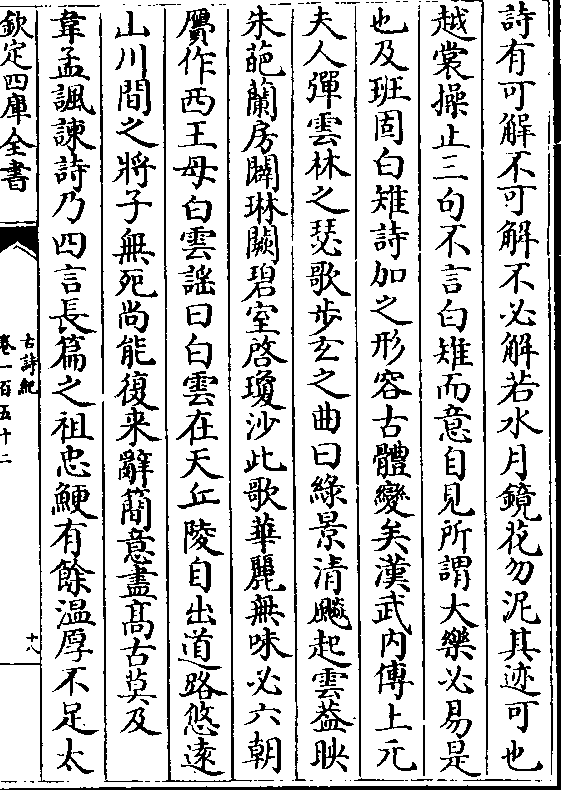 詩有可解不可解不必解若水月鏡花勿泥其迹可也
越裳操止三句不言白雉而意自見所謂大樂必易是
也及班固白雉詩加之形容古體變矣漢武内傳上元
夫人彈雲林之瑟歌步玄之曲曰綠景清飈起雲葢映
朱葩蘭房闢琳闕碧室啓瓊沙此歌華麗無味必六朝
贗作西王母白雲謡曰白雲在天丘陵自出道路悠逺
山川間之將子無死尚能復来辭簡意盡髙古莫及
韋孟諷諌詩乃四言長篇之祖忠鯁有餘温厚不足太
欽定四庫全書
古詩紀
卷一百五十二
十八